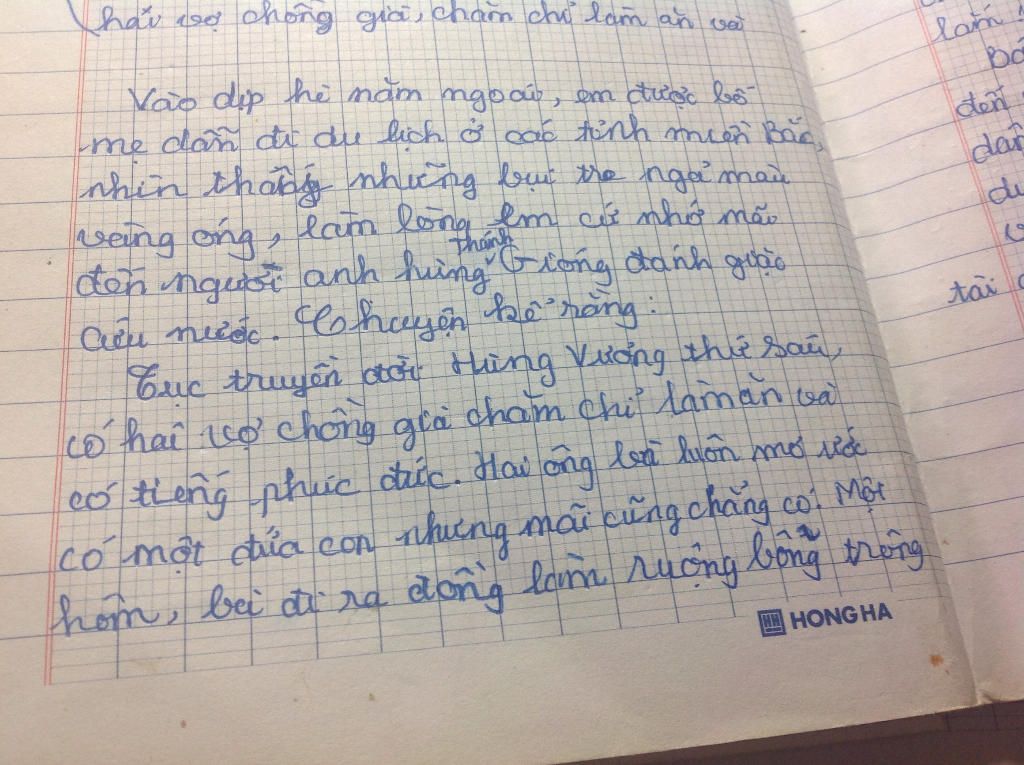 hai vợ chồng già, chăm chỉ làm ăn và
Vào dịp hè năm ngoái, em được bố
mẹ dẫn đi du lịch ở các tỉnh miền Bắc,
nhìn thấy những bụi tre ngả màu
vàng óng, làm lòng em cứ nhớ mãi
đến người anh hùng Thánh Gióng đánh giặc
cứu nước. Chuyện kể rằng:
Tục truyền đời Hùng Vương thứ sáu,
có hai vợ chồng già chăm chỉ làm ăn và
có tiếng phúc đức. Hai ông bà luôn mơ ước
có một đứa con nhưng mãi cũng chẳng có. Một
hôm, bà đi ra đồng làm ruộng bỗng trông
HH HONG HA
làm
đến
tài